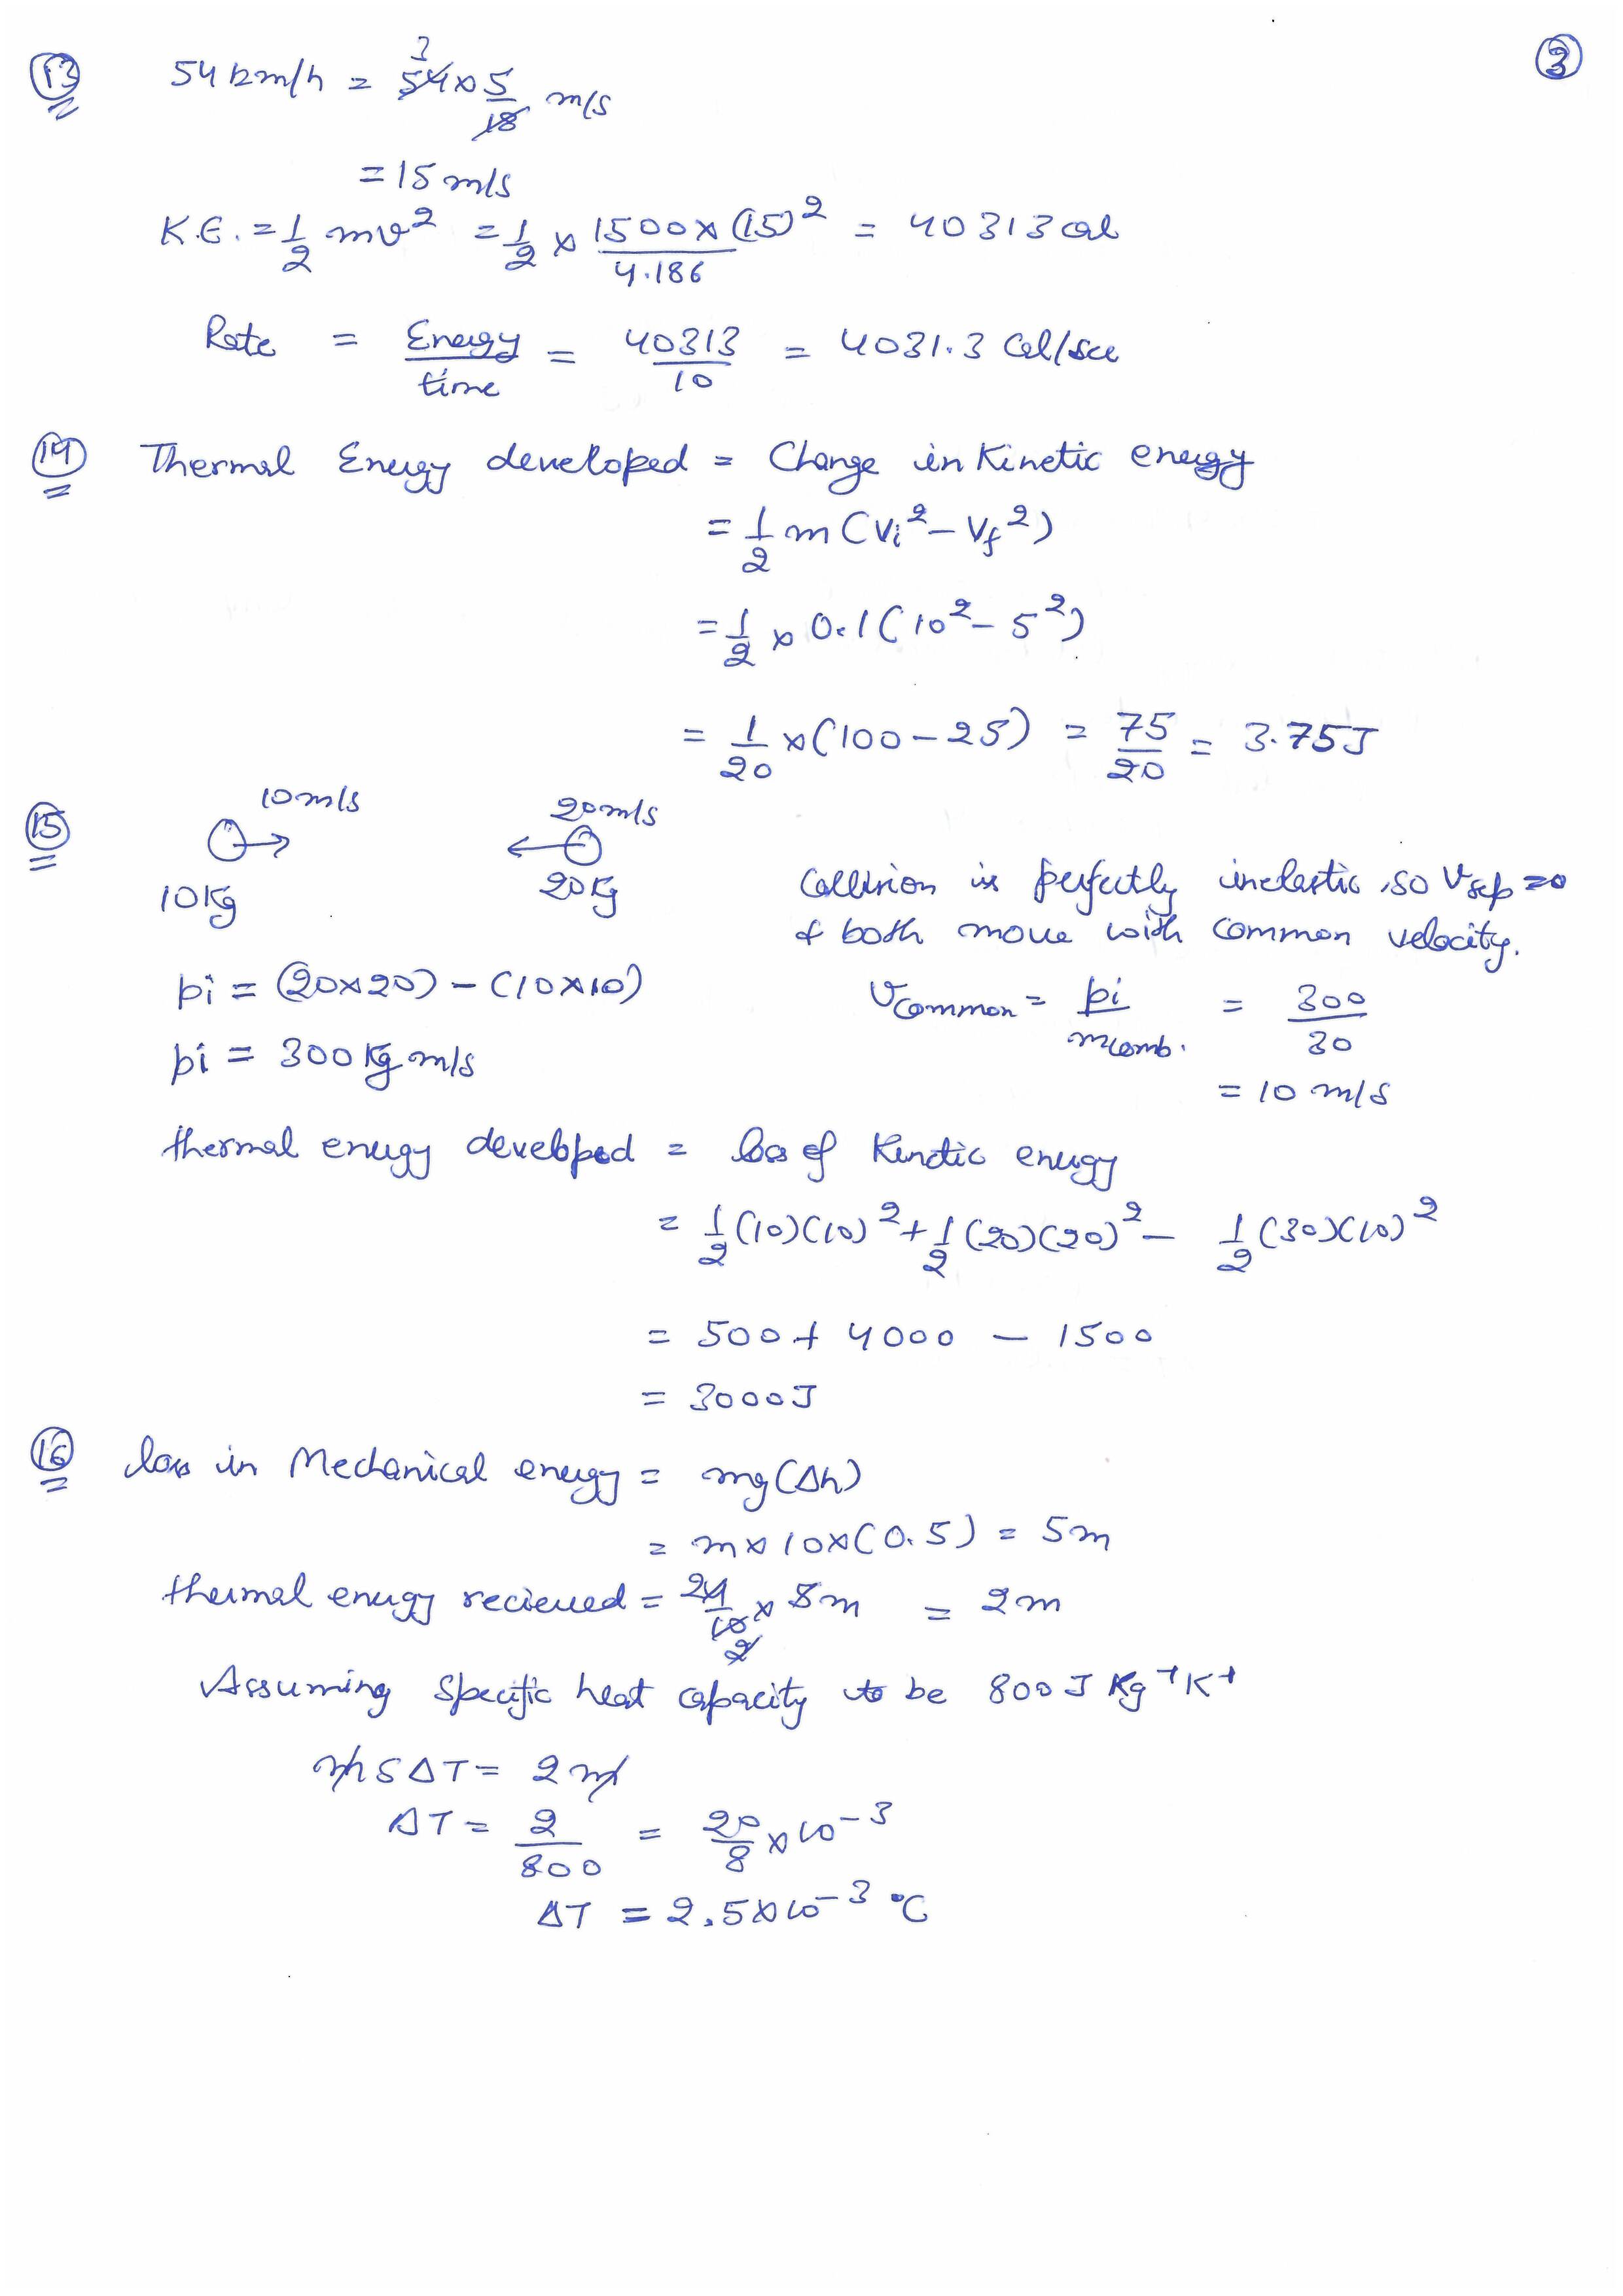 ③
⑬ 54 km/h = 54 × 5/18 m/s
3
= 15 m/s
K.E. = 1/2 mv² = 1/2 × 1500 × (15)²/4.186 = 40313 cal
Rate = Energy/time = 40313/10 = 4031.3 Cal/sec
⑭ Thermal Energy developed = Change in Kinetic energy
= 1/2 m (Vi² – Vf²)
= 1/2 × 0.1 (10² – 5²)
= 1/20 × (100 – 25) = 75/20 = 3.75J
⑮ 10m/s 20m/s
10Kg 20Kg
Collision is perfectly inelastic, so Vsep = 0
& both move with common velocity.
pi = (20×20) – (10×10)
pi = 300 Kg m/s
Vcommon = pi/mcomb. = 300/30
= 10 m/s
thermal energy developed = loss of Kinetic energy
= 1/2 (10)(10)² + 1/2 (20)(20)² – 1/2 (30)(10)²
= 500 + 4000 – 1500
= 3000J
⑯ loss in Mechanical energy = mg(Δh)
= m × 10 × (0.5) = 5m
thermal energy recieved = 4/10 × 5m = 2m
2
Assuming specific heat capacity to be 800 J Kg⁻¹ K⁻¹
m S ΔT = 2 m
ΔT = 2/800 = 20/8 × 10⁻³
ΔT = 2.5 × 10⁻³ °C